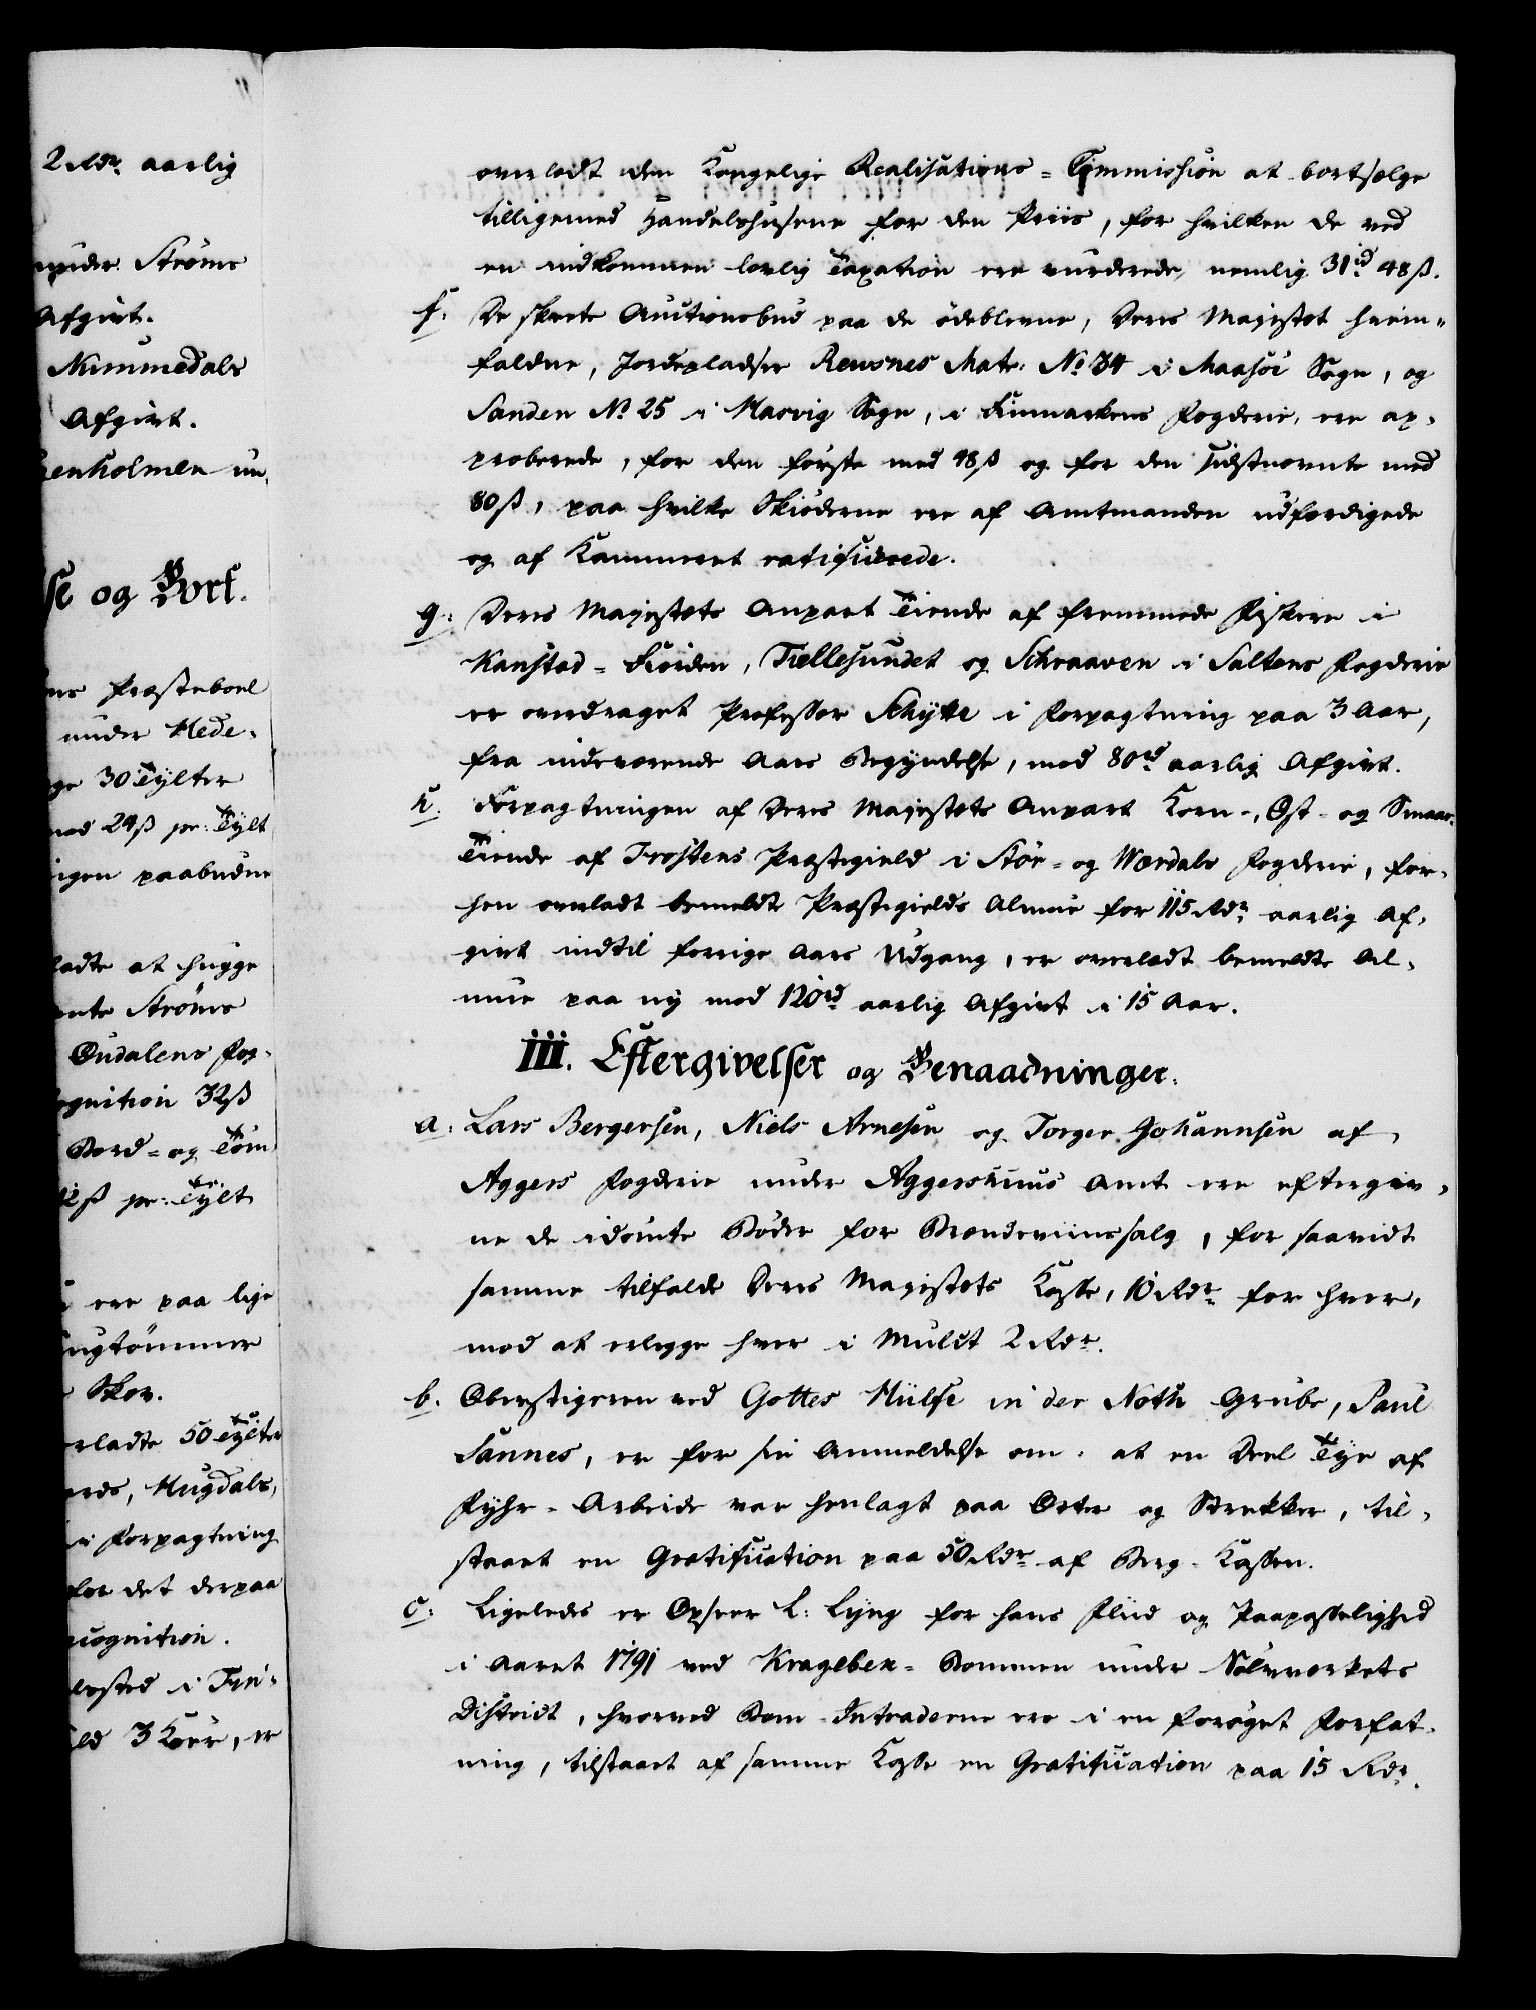 2 Rdr. aarlig
under Ströms
Afgivt.
Nummedals
Afgivt.
enholmen un
se og Fors.
ms Præsteboel
under Hede-
ge 30 Tylter
mod 24ß pr: Tylt
rigen paabudne
ladte at hugge
mte Ströms
Oudalens Fog-
ognition 32ß
Bord- og Töm
12ß pr: Tylt
ere paa lige
ugtömmer
Skov.
rladte 50 Tylter
ords, Hugdals,
i Forpagtning
for det derpaa
cognition.
losted i Fin-
ld 3 Koer, er
overladt den Kongelige Realisations-Commission at bortsælge
tilligemed Handelshusene for den Priis, for hvilken de ved
en indkommen lovlig Taxation ere vurderede, nemlig 31rd 48ß.
f. De skeete Auctionsbud paa de ödeblevne, Deres Majestet hiem-
faldne, Jordepladser Reusnes Matr: No 34 i Maasöe Sogn, og
Sanden No 25 i Marvig Sogn, i Finmarkens Fogderie, ere ap-
proberede, for den förste med 48ß og for den sidstnævnte med
80ß, paa hvilke Skiöderne ere af Amtmanden udfærdigede
og af Kammeret ratificerede.
g: Deres Majestets Anpart Tiende af fremmede Fiskere i
Kanstad-Fiorden, Tiellesundet og Schraaven i Saltens Fogderie
er overdraget Professor Schytte i Forpagtning paa 3 Aar,
fra indeværende Aars Begyndelse, mod 80rd aarlig Afgivt.
h. Forpagtningen af Deres Majestets Anpart Korn-, Ost- og Smaae-
Tiende af Frostens Præstegield i Stör- og Wærdals Fogderie, for-
hen overladt bemeldte Præstegields Almue for 115 Rdr aarlig Af-
givt indtil forrige Aars Udgang, er overladt bemeldte Al-
mue paa ny mod 120rd aarlig Afgivt i 15 Aar.
III. Eftergivelser og Benaadninger.
a. Lars Bergersen, Niels Arnesen og Torger Johannsen af
Aggers Fogderie under Aggershuus Amt ere eftergiv-
ne de idömte Böder for Brændeviinssalg, for saavidt
samme tilfalde Deres Majestets Kasse, 10 Rdr for hver,
mod at erlegge hver i Mulct 2 Rdr.
b. Oberstigeren ved Gottes Hülfe in der Noth Grube, Paul
Sannes, er for sin Anmeldelse om, at en Deel Tye af
Fyhr-Arbeide var henlagt paa Orter og Strekker, til-
staaet en Gratification paa 50 Rdr af Berg-Kassen.
c: Ligeledes er Opseer L: Lyng for hans Fliid og Paapasselighed
i Aaret 1791 ved Krageben-Bommen under Sölvverkets
District, hvorved Bom-Intraderne ere i en foröget Forfat-
ning, tilstaaet af samme Kasse en Gratification paa 15 Rdr.